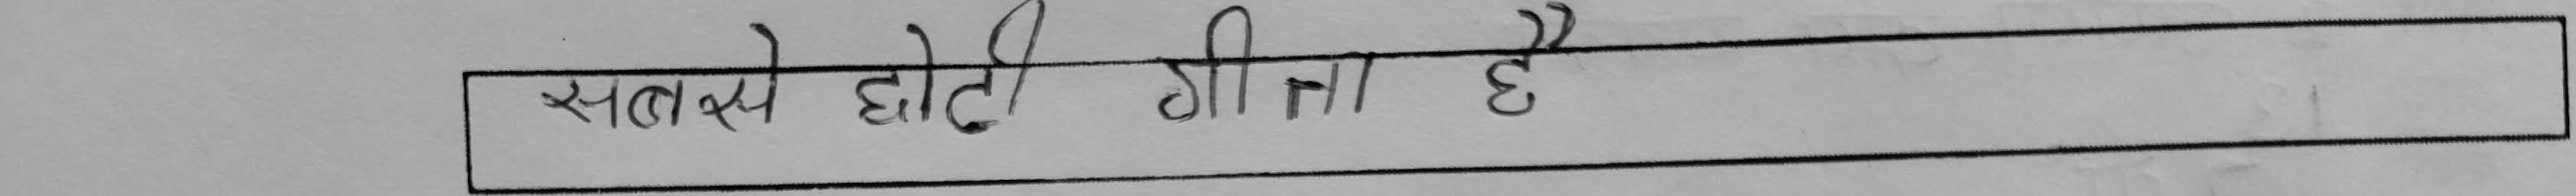 सबसे छोटी गीता है